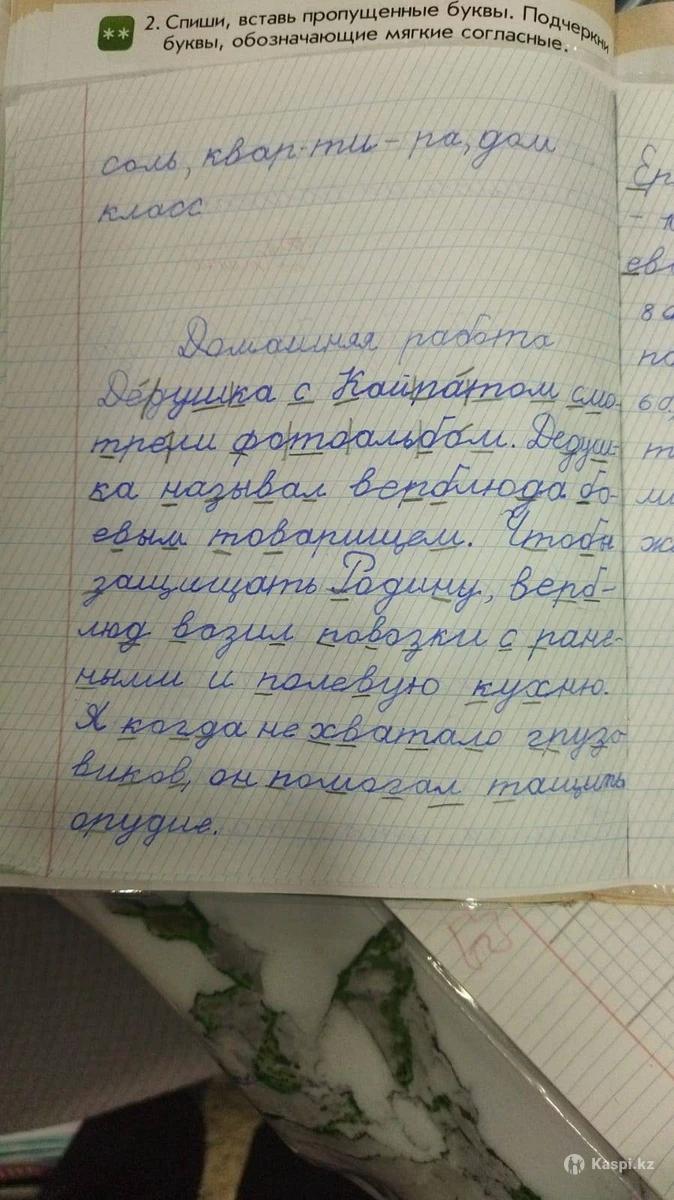 **
2. Спиши, вставь пропущенные буквы. Подчеркни
буквы, обозначающие мягкие согласные.
соль, квар-ти-ра, дом
класс
Домашняя работа
Дедушка с Кайратом смо-
трели фотоальбом. Дедуш-
ка называл верблюда бо-
евым товарищем. Чтобы
защищать Родину, верб-
люд возил повозки с ране-
ными и полевую кухню.
А когда не хватало грузо
виков, он помогал тащить
орудие.
Kaspi.kz